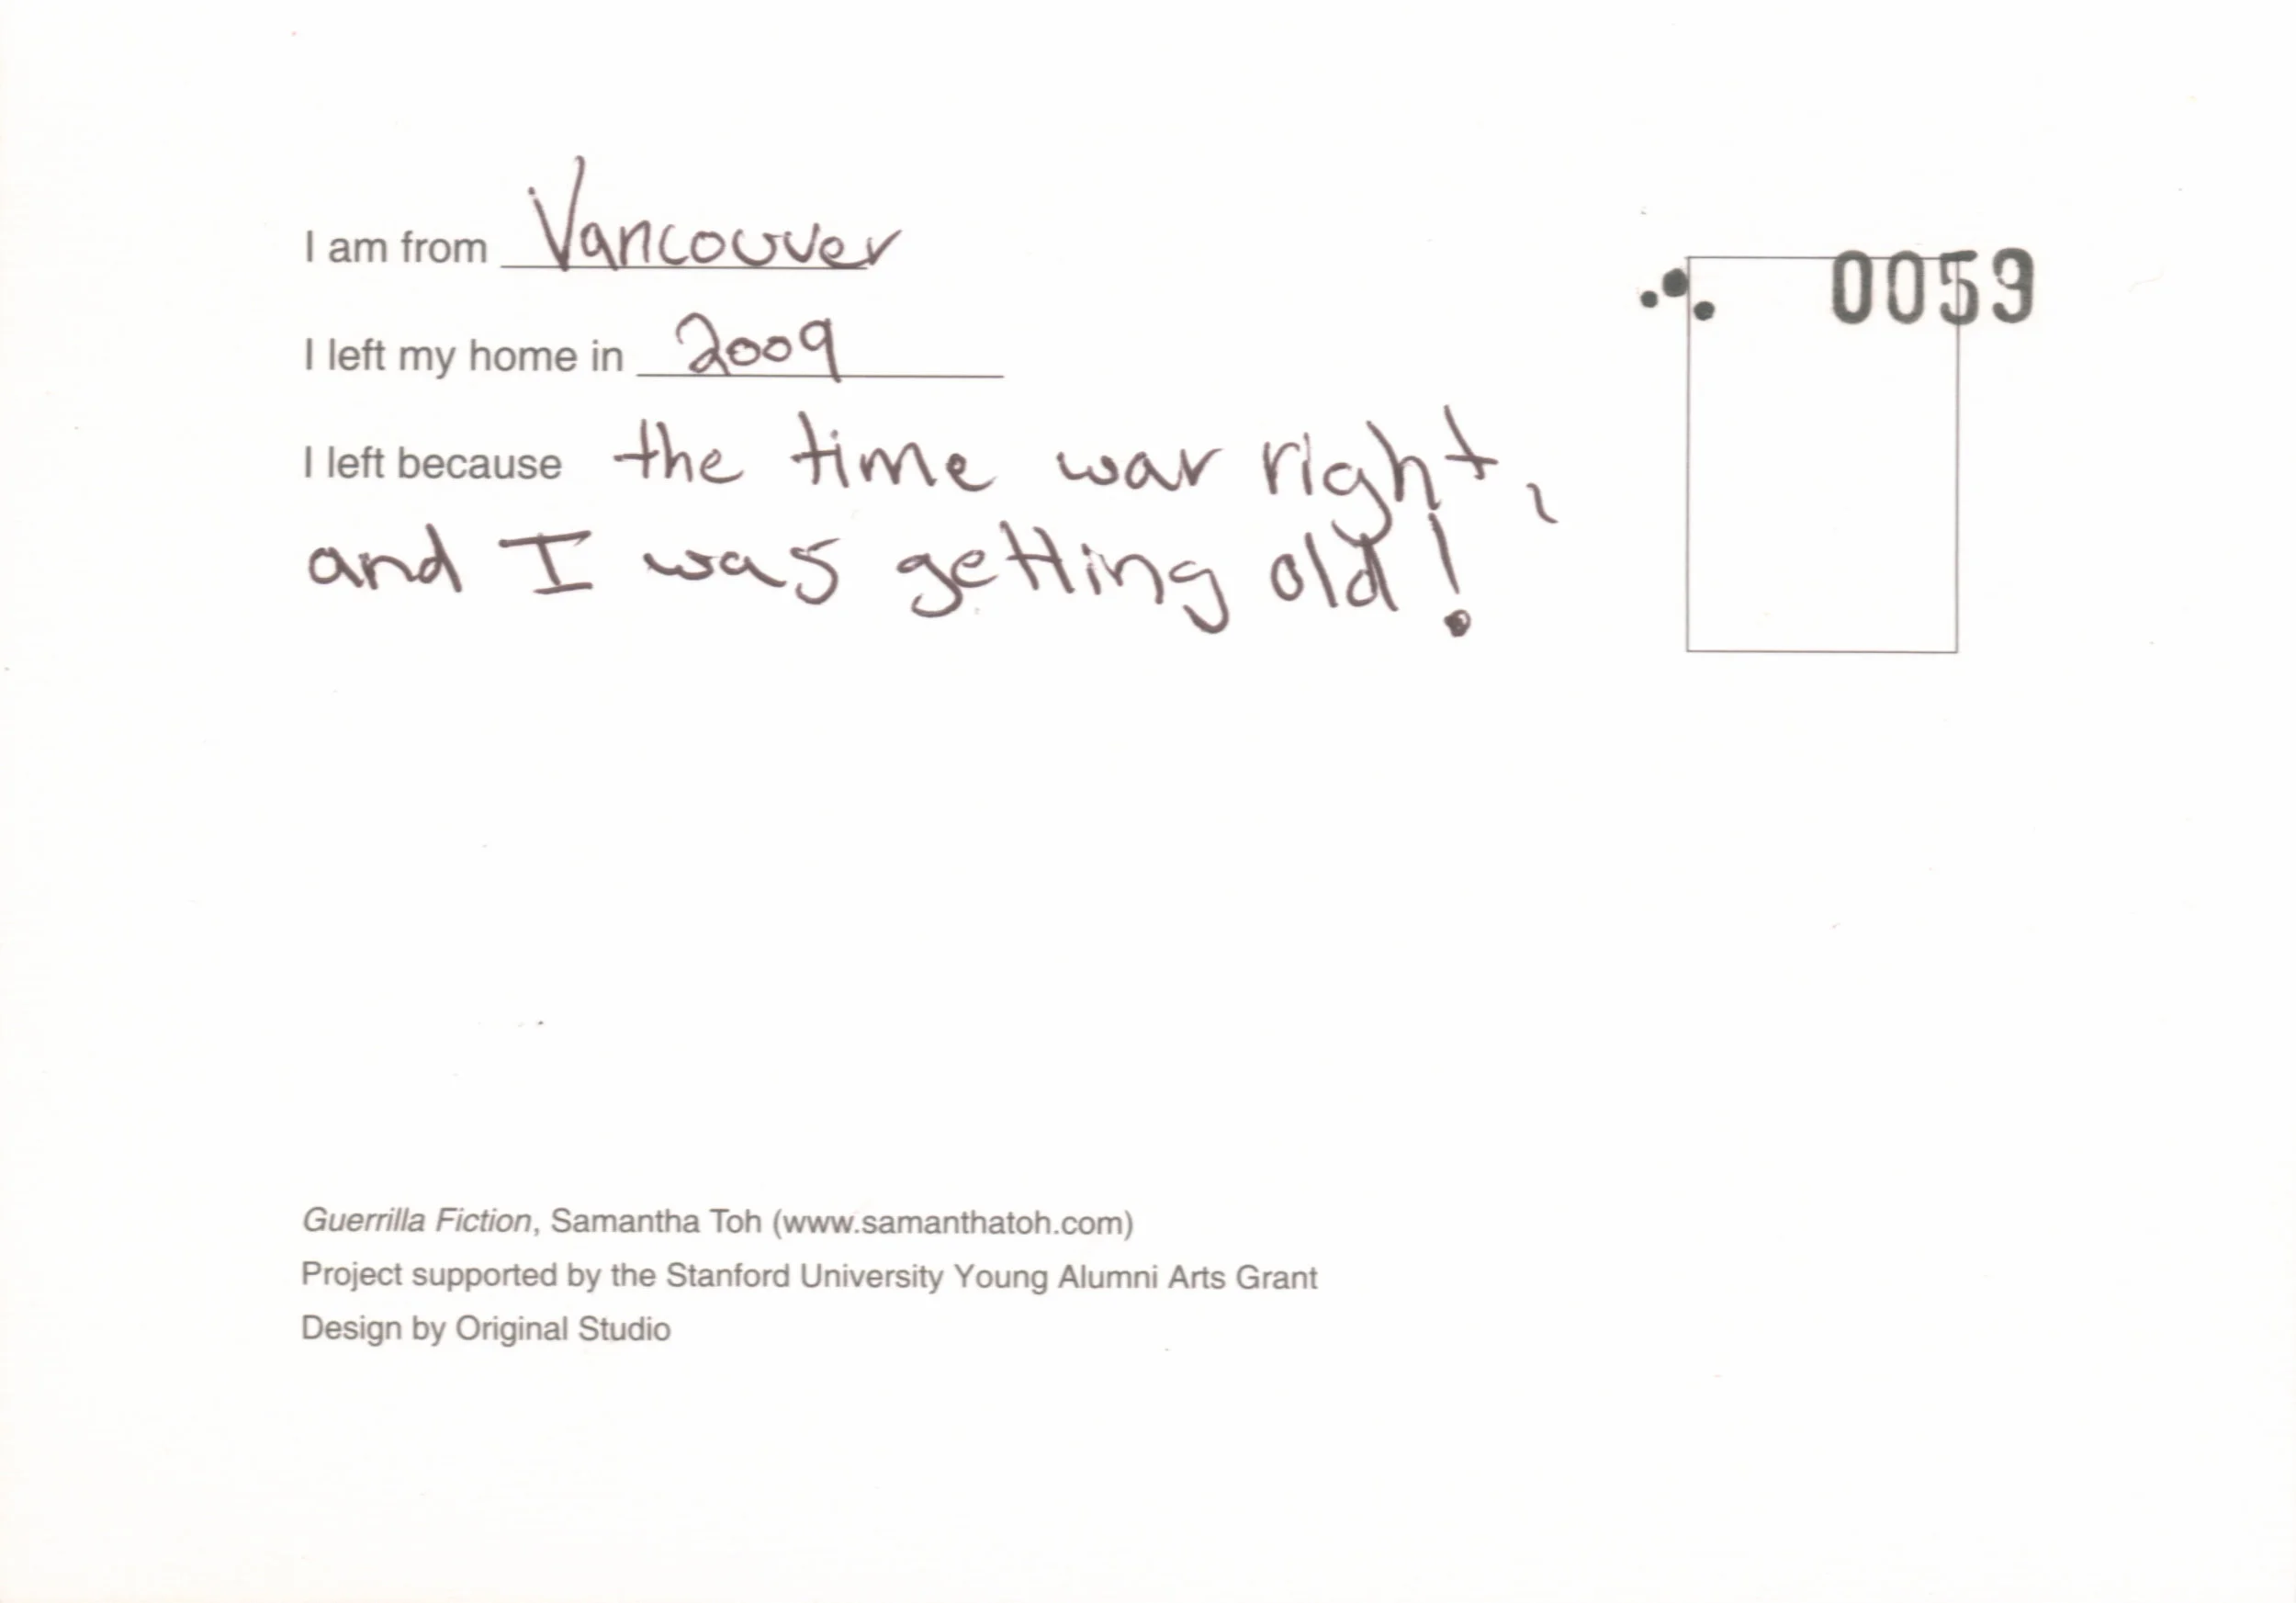 I am from Vancouver
0059
I left my home in 2009
I left because the time was right,
and I was getting old!
Guerrilla Fiction, Samantha Toh (www.samanthatoh.com)
Project supported by the Stanford University Young Alumni Arts Grant
Design by Original Studio